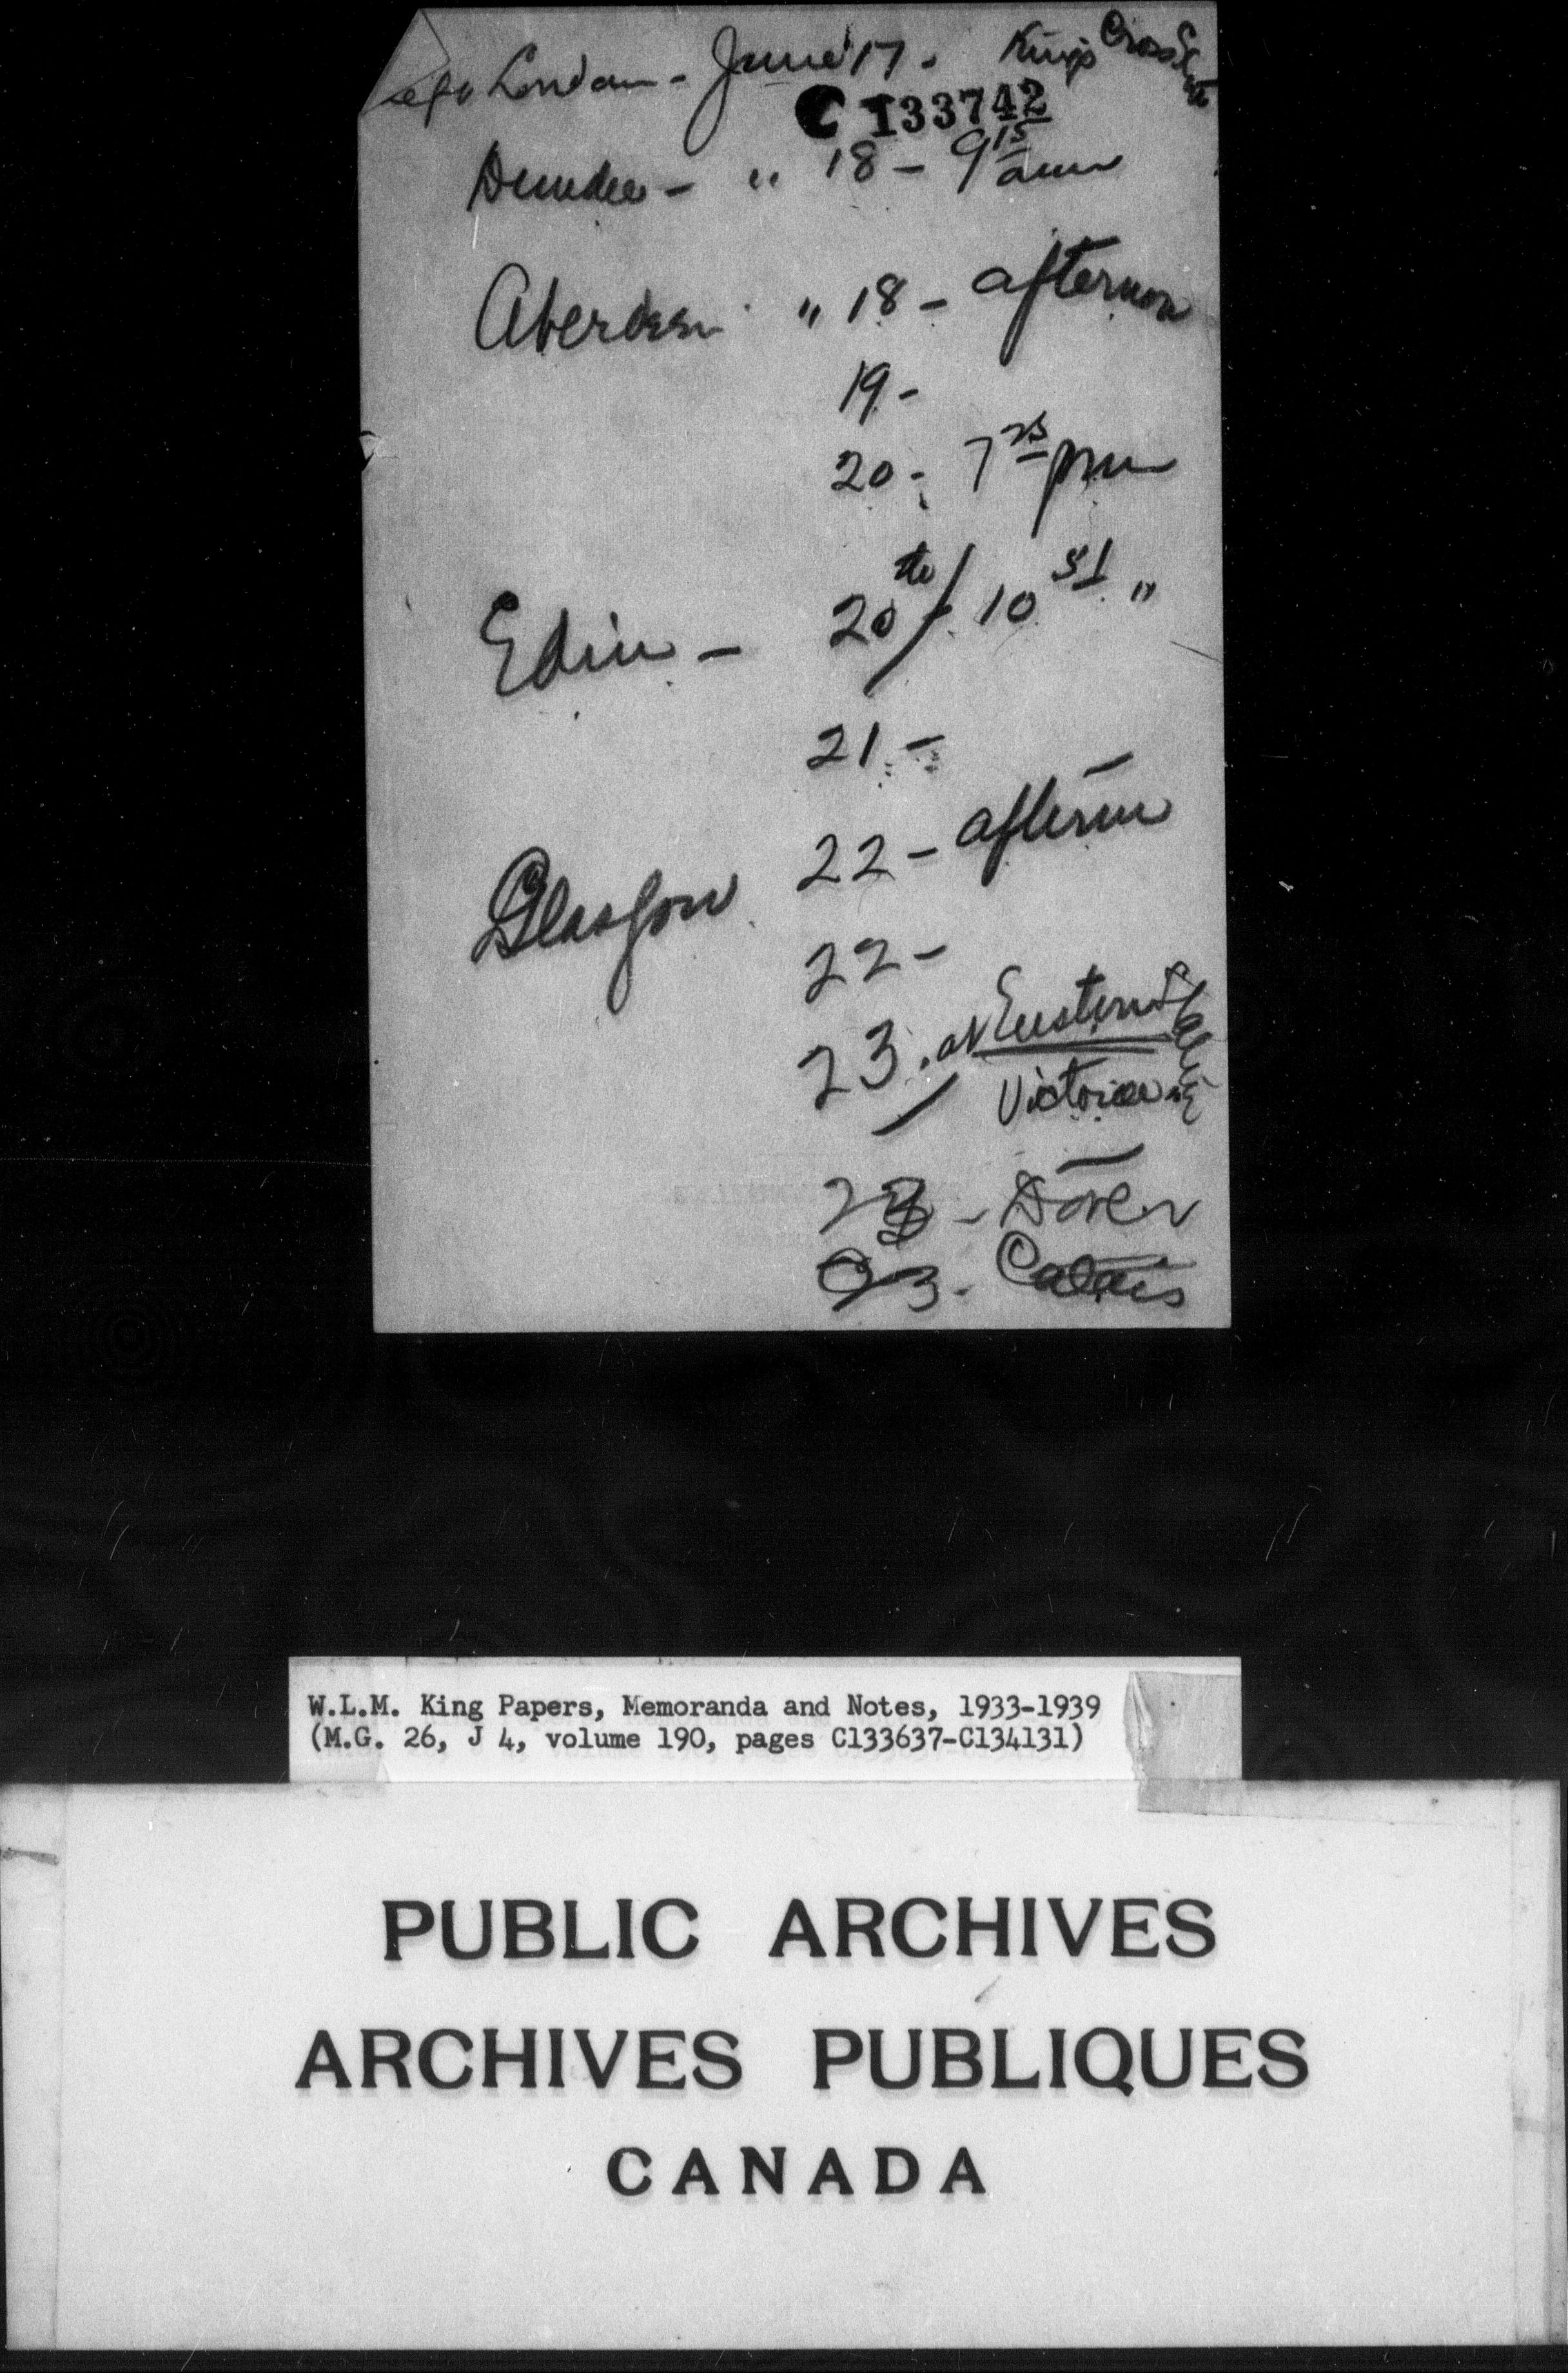 London - June 17. Kings Cross
C133742
Dundee - " 18 - 9 15 am
Aberdeen " 18 - afternoon
19 -
20 - 7 25 pm
Edin - 20th / 10 51 "
21 -
22 - aftern
Glasgow
22 -
23. at Euston Station
Victoria
23 - Dover
23 - Calais
W.L.M. King Papers, Memoranda and Notes, 1933-1939
(M.G. 26, J 4, volume 190, pages C133637-C134131)
PUBLIC ARCHIVES
ARCHIVES PUBLIQUES
CANADA